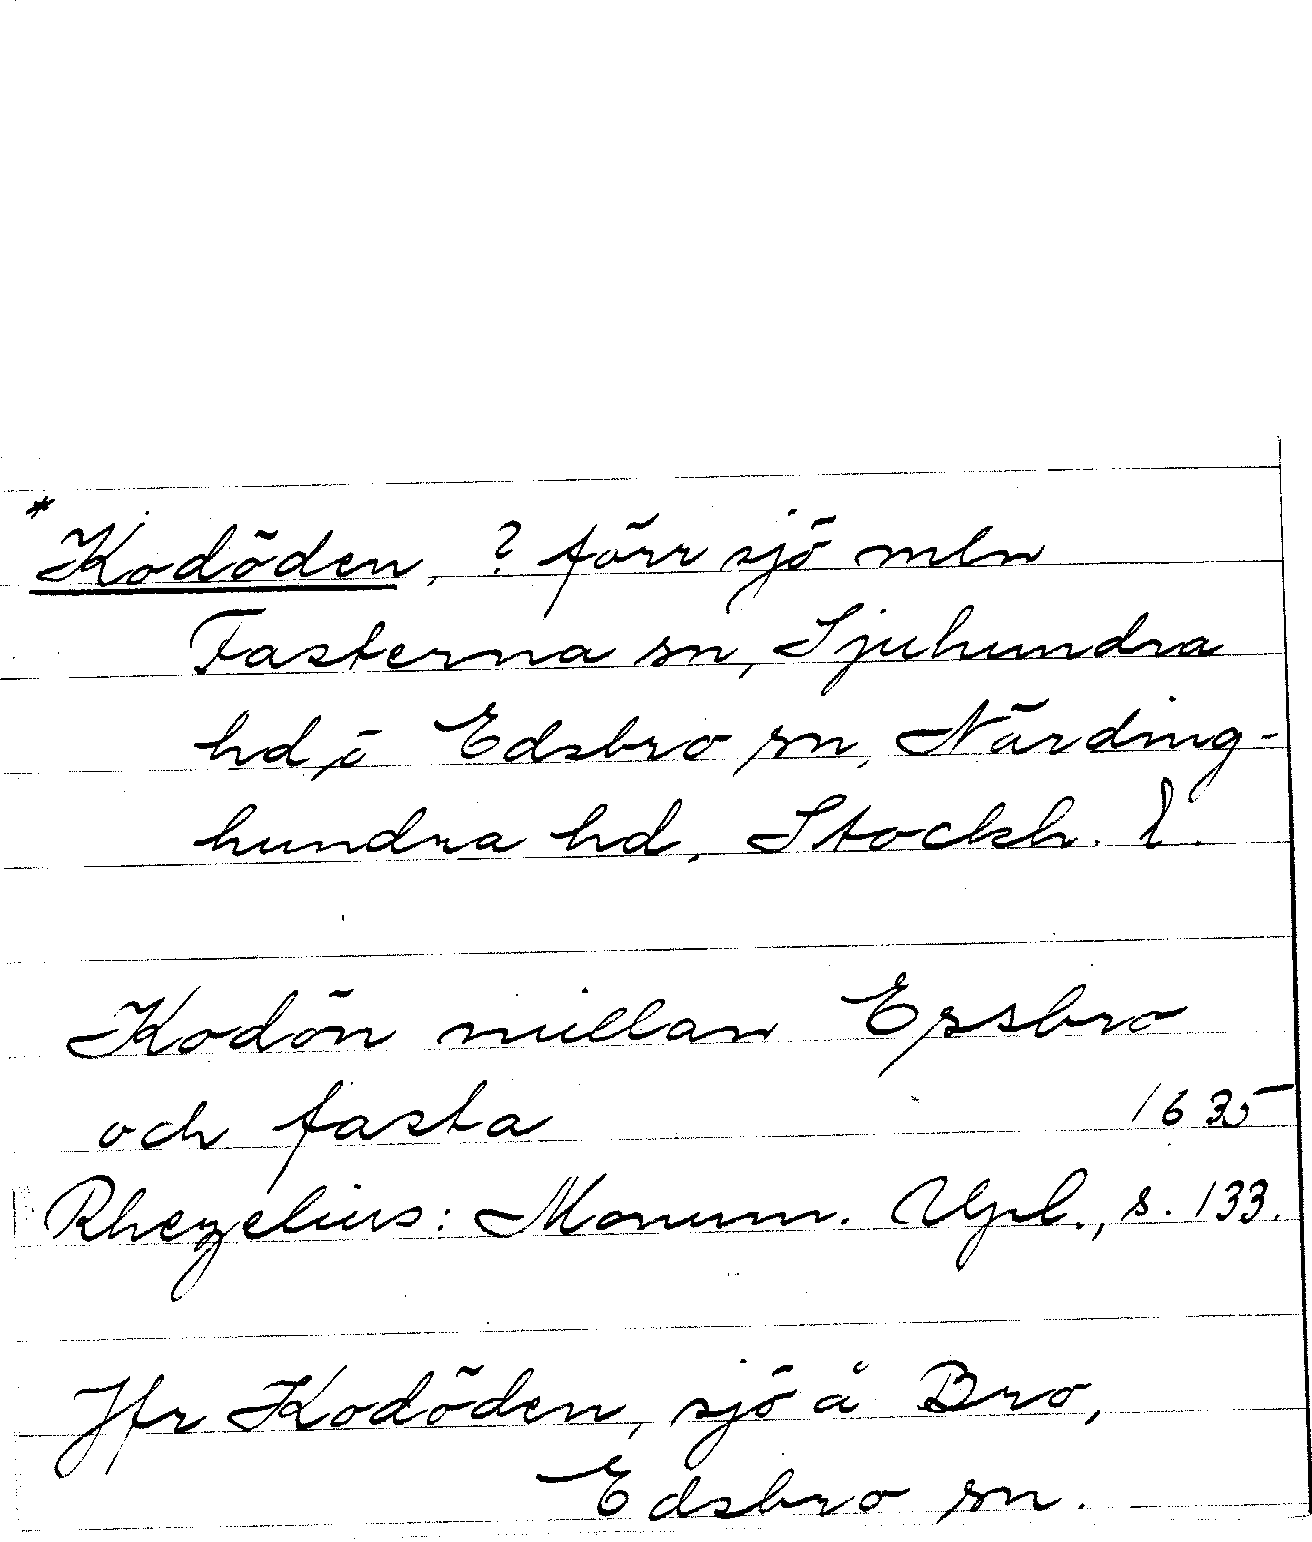 *Kodöden, ? förr sjö mln
Fasterna sn, Sjuhundra
hd, o Edsbro sn, Närding-
hundra hd, Stockh. l.
Kodön millan Erssbro
och fasta 1635
Rhezelius: Monum. Upl., s. 133.
Jfr Kodöden, sjö å Bro,
Edsbro sn.